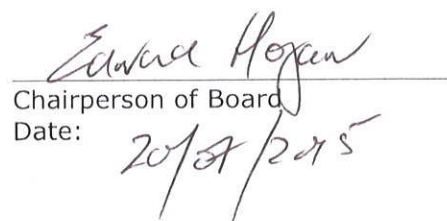 Edward Hogan
Chairperson of Board
Date: 20/07/2015